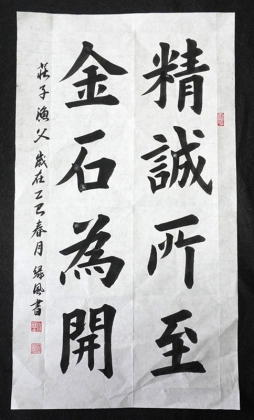 精誠所至
金石為開
莊子漁父 歲在乙巳春月 緣風書